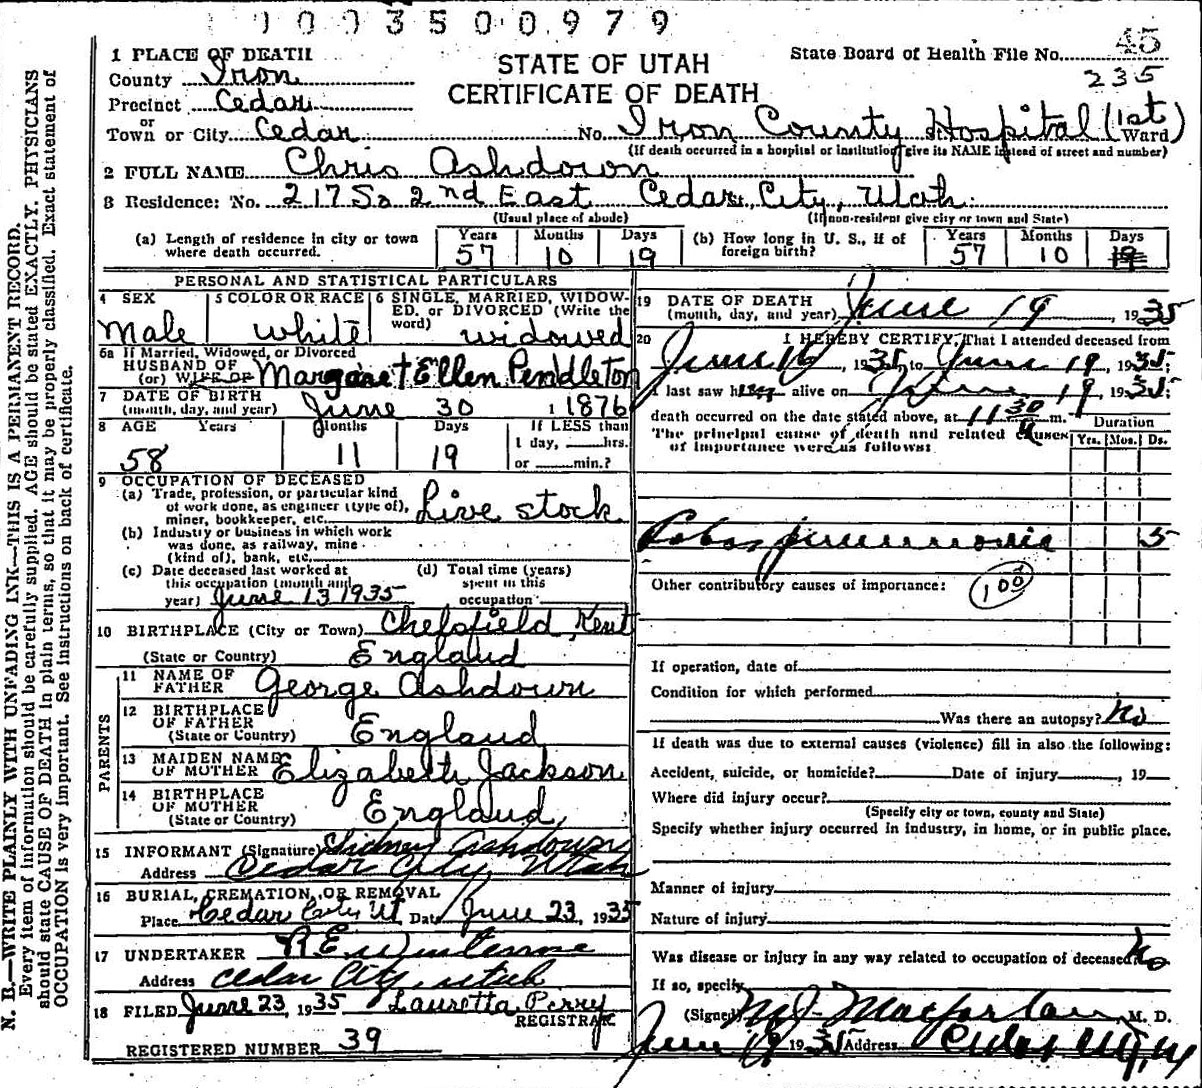 1 0 0 3 5 0 0 9 7 9
STATE OF UTAH
CERTIFICATE OF DEATH
State Board of Health File No. 45
235
1 PLACE OF DEATH
County Iron
Precinct Cedar
or
Town or City Cedar No. Iron County Hospital St. (1st Ward)
(If death occurred in a hospital or institution, give its NAME instead of street and number)
2 FULL NAME Chris Ashdown
3 Residence: No. 217 So 2nd East Cedar City, Utah.
(Usual place of abode) (If non-resident give city or town and State)
(a) Length of residence in city or town where death occurred. Years 57 Months 10 Days 19
(b) How long in U. S., if of foreign birth? Years 57 Months 10 Days 19
PERSONAL AND STATISTICAL PARTICULARS
4 SEX Male
5 COLOR OR RACE White
6 SINGLE, MARRIED, WIDOWED, or DIVORCED (Write the word) widowed
6a If Married, Widowed, or Divorced
HUSBAND OF
(or) WIFE OF Margaret Ellen Pendleton
7 DATE OF BIRTH
(month, day, and year) June 30 1 1876
8 AGE Years 58 Months 11 Days 19 If LESS than 1 day, hrs. or min.?
9 OCCUPATION OF DECEASED
(a) Trade, profession, or particular kind
of work done, as engineer (type of),
miner, bookkeeper, etc. Live stock
(b) Industry or business in which work
was done, as railway, mine
(kind of), bank, etc.
(c) Date deceased last worked at
this occupation (month and
year) June 13 1935
(d) Total time (years)
spent in this
occupation
10 BIRTHPLACE (City or Town) Chelsfield, Kent
(State or Country) England
PARENTS
11 NAME OF FATHER George Ashdown
12 BIRTHPLACE OF FATHER
(State or Country) England
13 MAIDEN NAME OF MOTHER Elizabeth Jackson
14 BIRTHPLACE OF MOTHER
(State or Country) England
15 INFORMANT (Signature) Sidney Ashdown
Address Cedar City, Utah
16 BURIAL, CREMATION, OR REMOVAL
Place Cedar City Ut Date June 23, 1935
17 UNDERTAKER
Address Cedar City, Utah
18 FILED June 23, 1935 Lauretta Perry
REGISTRAR
REGISTERED NUMBER 39
19 DATE OF DEATH
(month, day, and year) June 19, 1935
20 I HEREBY CERTIFY, That I attended deceased from
June 16, 1935, to June 19, 1935;
I last saw him alive on June 19, 1935;
death occurred on the date stated above, at 11 30 m.
The principal cause of death and related causes
of importance were as follows:
Duration
Yrs. Mos. Ds.
Lobar pneumonia 5
Other contributory causes of importance:
If operation, date of
Condition for which performed
Was there an autopsy? No
If death was due to external causes (violence) fill in also the following:
Accident, suicide, or homicide? Date of injury , 19
Where did injury occur?
(Specify city or town, county and State)
Specify whether injury occurred in industry, in home, or in public place.
Manner of injury
Nature of injury
Was disease or injury in any way related to occupation of deceased? No
If so, specify
(Signed) M. J. Macfarlane, M. D.
June 19 1935 Address Cedar City, Ut
N. B.—WRITE PLAINLY WITH UNFADING INK—THIS IS A PERMANENT RECORD.
Every item of information should be carefully supplied. AGE should be stated EXACTLY. PHYSICIANS
should state CAUSE OF DEATH in plain terms, so that it may be properly classified. Exact statement of
OCCUPATION is very important. See instructions on back of certificate.